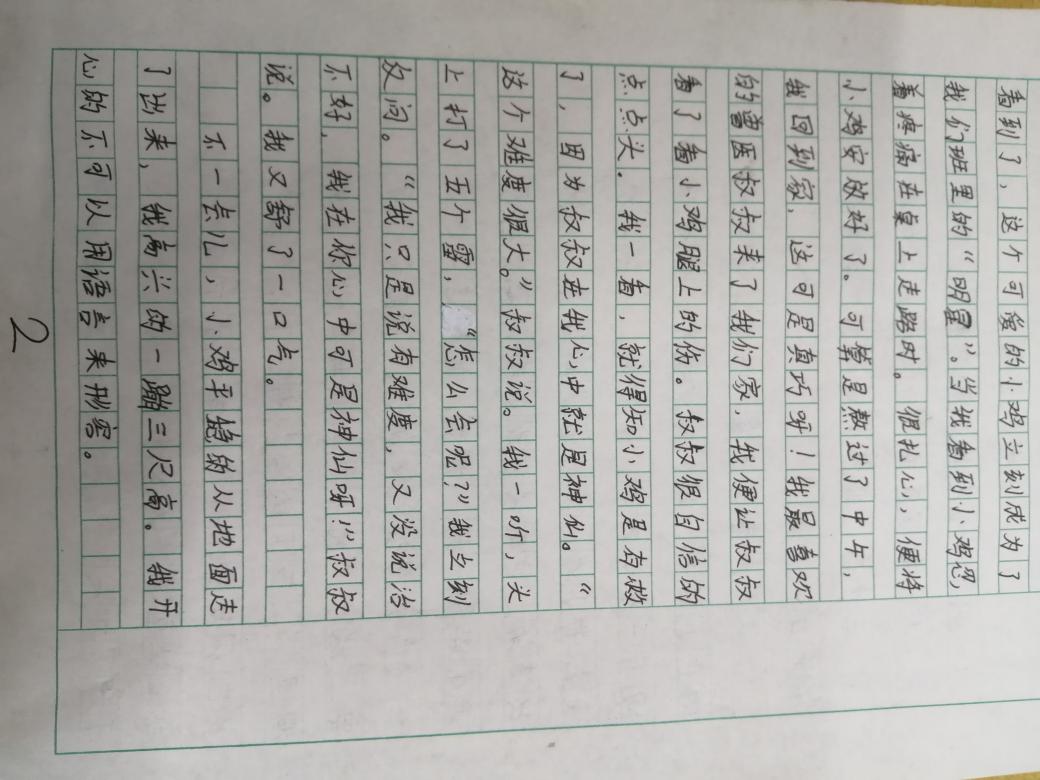 看到了，这个可爱的小鸡立刻成为了
我们班里的“明星”。当我看到小鸡忍
着疼痛在桌上走路时。很扎心，便将
小鸡安放好了。可算是熬过了中午，
我回到家，这可是真巧呀！我最喜欢
的兽医叔叔来了我们家，我便让叔叔
看了看小鸡腿上的伤。叔叔很自信的
点点头。我一看，就得知小鸡是有救
了，因为叔叔在我心中就是神仙。“
这个难度很大。”叔叔说。我一听，头
上打了五个雷，“怎么会呢？”我立刻
反问。“我只是说有难度，又没说治
不好，我在你心中可是神仙呀！”叔叔
说。我又舒了一口气。
不一会儿，小鸡平稳的从地面走
了出来，我高兴的一蹦三尺高。我开
心的不可以用语言来形容。
2